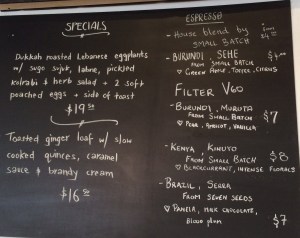 SPECIALS
Dukkah roasted Lebanese eggplants
w/ sugo sujuk, labne, pickled
kolrabi & herb salad + 2 soft
poached eggs + side of toast
$19.50
Toasted ginger loaf w/ slow
cooked quinces, caramel
sauce & brandy cream
$16.50
ESPRESSO
- House blend by
SMALL BATCH
from
$4.00
- BURUNDI, SEHE
FROM SMALL BATCH
$4.00
♡ GREEN APPLE, TOFFEE, CITRUS
FILTER V60
- BURUNDI, MURUTA
FROM SMALL BATCH
$7
♡ PEAR, APRICOT, VANILLA
- KENYA, KINUYO
FROM SMALL BATCH
$8
♡ BLACKCURRANT, INTENSE FLORALS
- BRAZIL, SERRA
FROM SEVEN SEEDS
♡ PANELA, MILK CHOCOLATE,
BLOOD PLUM
$7